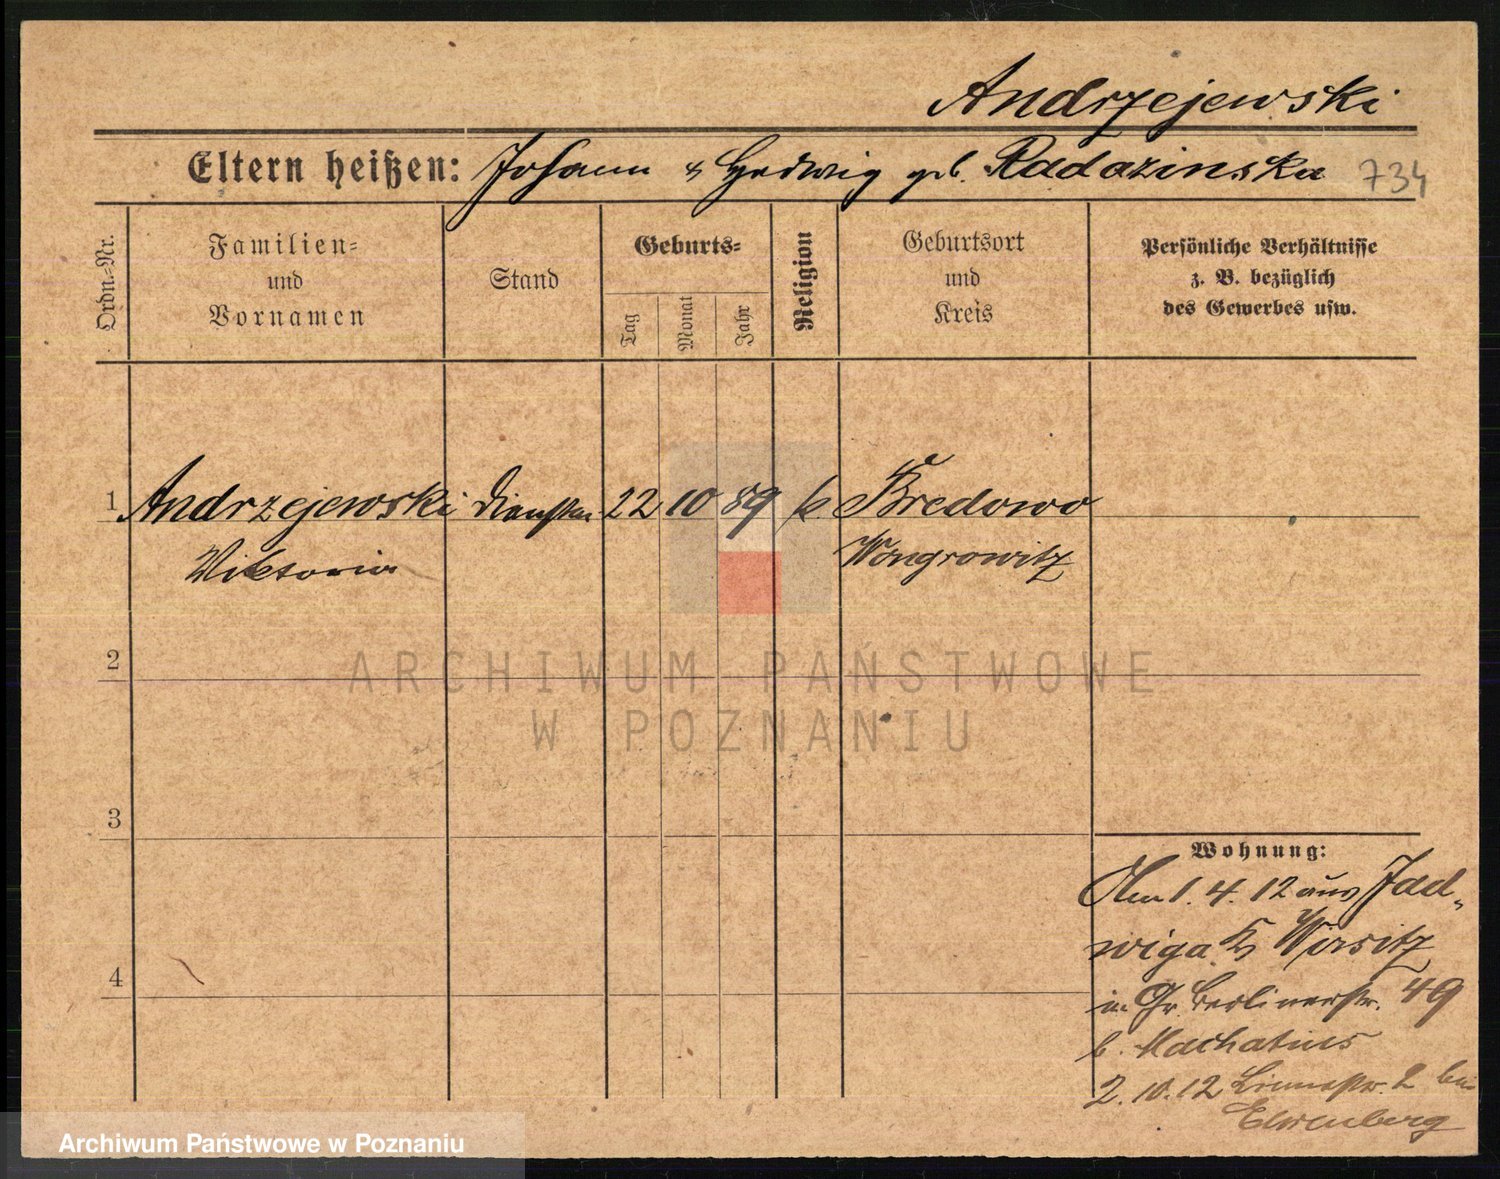 Andrzejewski
Eltern heißen: Johann u Hedwig geb. Radazinska 734
Ordn.=Nr.
Familien=
und
Vornamen
Stand
Geburts=
Tag
Monat
Jahr
Religion
Geburtsort
und
Kreis
Persönliche Verhältnisse
z. B. bezüglich
des Gewerbes usw.
1 Andrzejewski 22 10 89 k. Bredowo
Viktoria Wongrowitz
2
3
4
Wohnung:
Am 1. 4. 12 aus Jad-
wiga Kr Wirsitz
in Gr. Berlinerstr. 49
b. Machatius
2. 10. 12 2 bei
Ehrenberg
ARCHIWUM PAŃSTWOWE
W POZNANIU
Archiwum Państwowe w Poznaniu